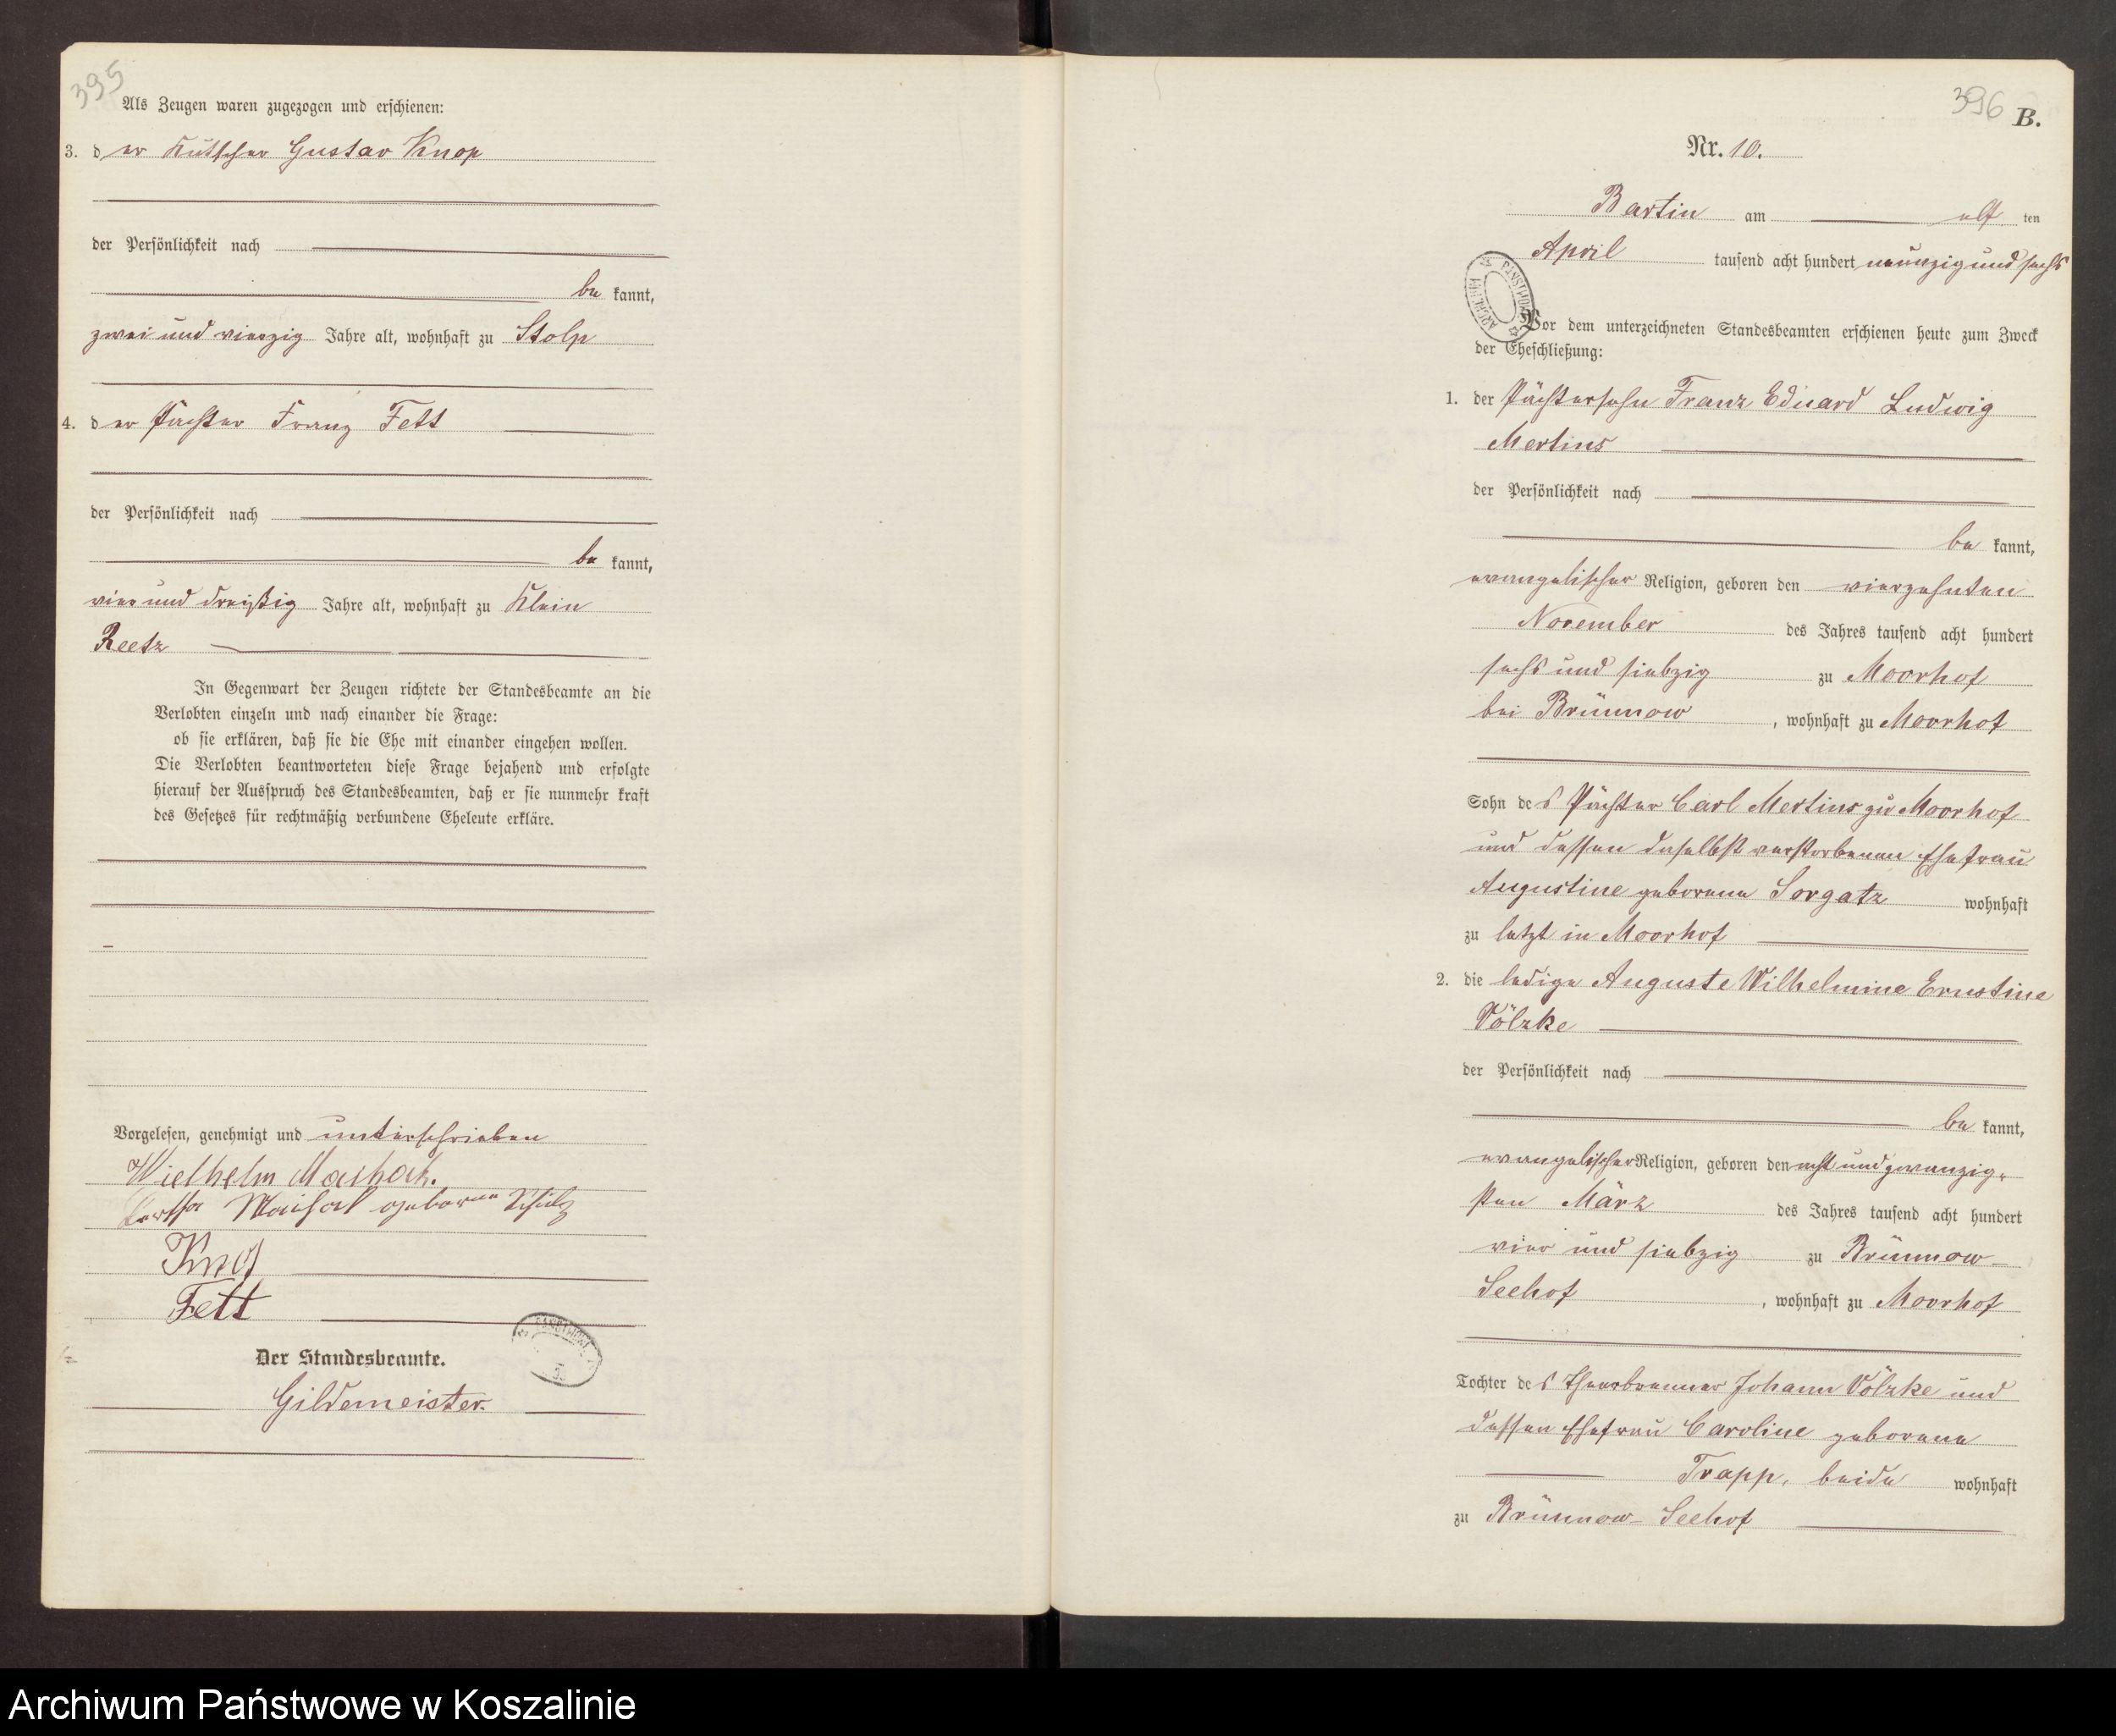 395
Als Zeugen waren zugezogen und erschienen:
3. der Kutscher Gustav Knop
der Persönlichkeit nach
be kannt,
zwei und vierzig Jahre alt, wohnhaft zu Stolp
4. der Pächter Franz Fett
der Persönlichkeit nach
be kannt,
vier und dreißig Jahre alt, wohnhaft zu Klein
Reetz
In Gegenwart der Zeugen richtete der Standesbeamte an die
Verlobten einzeln und nach einander die Frage:
ob sie erklären, daß sie die Ehe mit einander eingehen wollen.
Die Verlobten beantworteten diese Frage bejahend und erfolgte
hierauf der Ausspruch des Standesbeamten, daß er sie nunmehr kraft
des Gesetzes für rechtmäßig verbundene Eheleute erkläre.
Vorgelesen, genehmigt und unterschrieben
geborene Schulz
Knop
Fett
Der Standesbeamte.
Gildemeister.
396
B.
Nr. 10.
Bartin am elf ten
April tausend acht hundert neunzig und sechs
Vor dem unterzeichneten Standesbeamten erschienen heute zum Zweck
der Eheschließung:
1. der Pächtersohn Franz Eduard Ludwig
Mertins
der Persönlichkeit nach
be kannt,
evangelischer Religion, geboren den vierzehnten
November des Jahres tausend acht hundert
sechs und siebzig zu Moorhof
bei Brünnow, wohnhaft zu Moorhof
Sohn des Pächter Carl Mertins zu Moorhof
und dessen daselbst verstorbenen Ehefrau
Augustine geborene Sorgatz wohnhaft
zu letzt in Moorhof
2. die ledige Auguste Wilhelmine Ernstine
Völzke
der Persönlichkeit nach
be kannt,
evangelischer Religion, geboren den acht und zwanzig-
sten März des Jahres tausend acht hundert
vier und siebzig zu Brünnow-
Seehof, wohnhaft zu Moorhof
Tochter des Theerbrenner Johann Völzke und
dessen Ehefrau Caroline geborene
Trapp, beide wohnhaft
zu Brünnow-Seehof
Archiwum Państwowe w Koszalinie